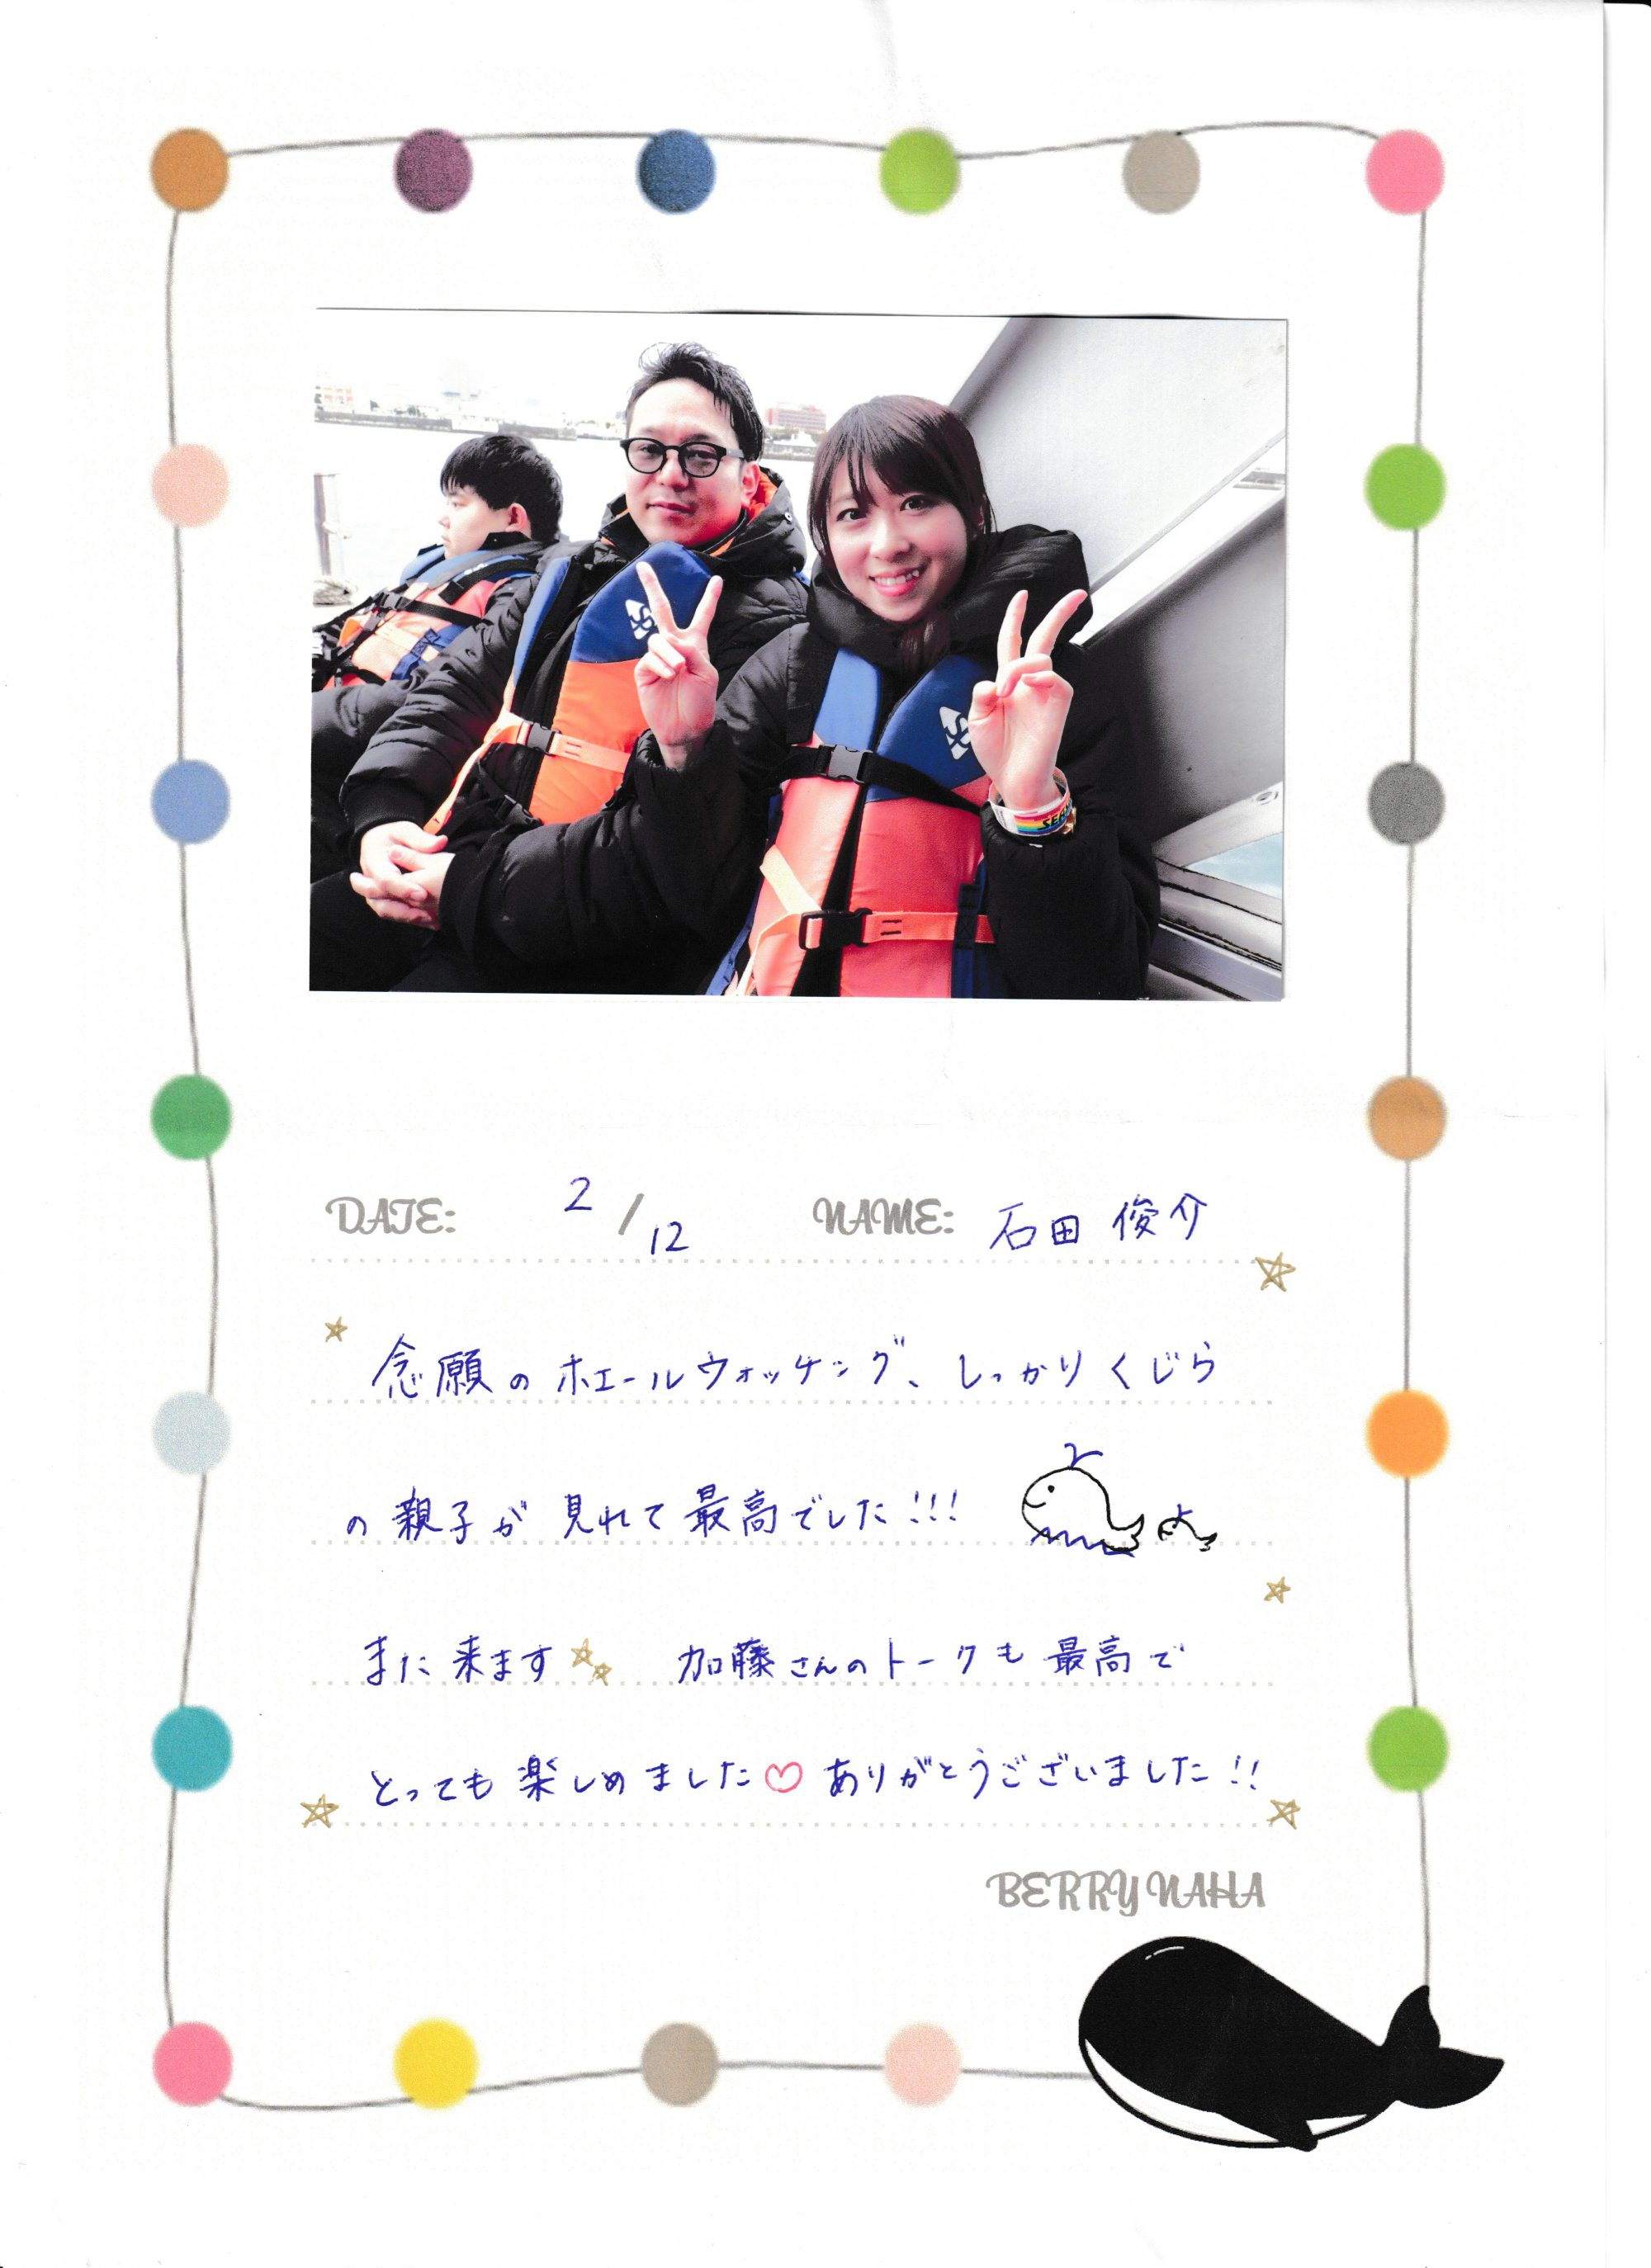 DATE: 2/12 NAME: 石田 俊介
念願のホエールウォッチング、しっかりくじら
の親子が見れて最高でした!!!
また来ます 加藤さんのトークも最高で
とっても楽しめました♡ありがとうございました!!
BERRY NAHA